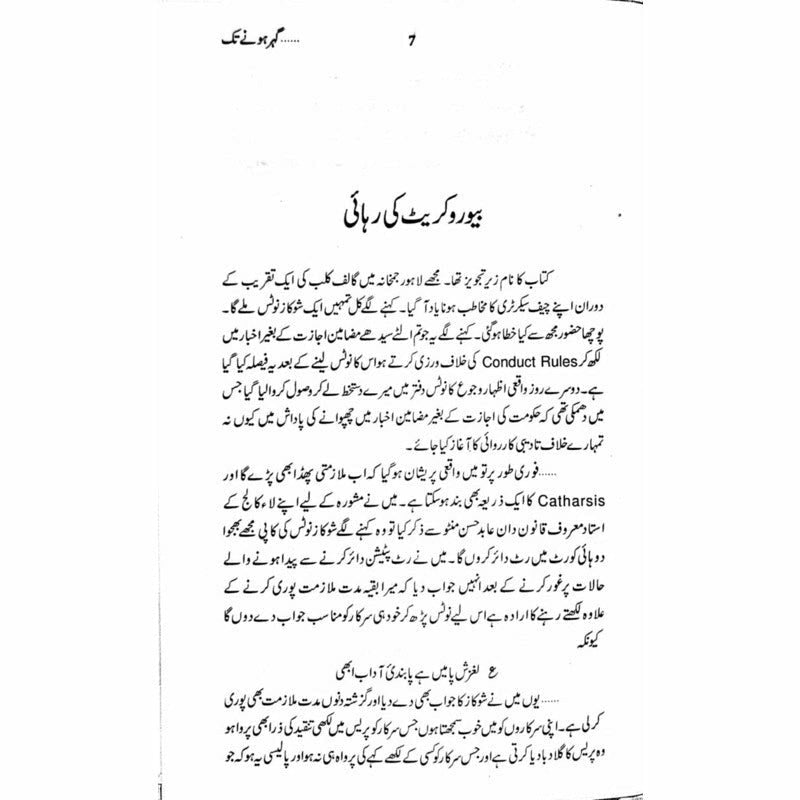 ......گہر ہونے تک
7
بیوروکریٹ کی رہائی
کتاب کا نام زیرِ تجویز تھا۔ مجھے لاہور جمخانہ میں گالف کلب کی ایک تقریب کے
دوران اپنے چیف سیکرٹری کا مخاطب ہونا یاد آ گیا۔ کہنے لگے کل تمہیں ایک شوکاز نوٹس ملے گا۔
پوچھا حضور مجھ سے کیا خطا ہو گئی۔ کہنے لگے یہ جو تم الٹے سیدھے مضامین اجازت کے بغیر اخبار میں
لکھ کر Conduct Rules کی خلاف ورزی کرتے ہو اس کا نوٹس لینے کے بعد یہ فیصلہ کیا گیا
ہے۔ دوسرے روز واقعی اظہار وجوع کا نوٹس دفتر میں میرے دستخط لے کر وصول کروا لیا گیا جس
میں دھمکی تھی کہ حکومت کی اجازت کے بغیر مضامین اخبار میں چھپوانے کی پاداش میں کیوں نہ
تمہارے خلاف تادیبی کارروائی کا آغاز کیا جائے۔
......فوری طور پر تو میں واقعی پریشان ہو گیا کہ اب ملازمتی پھڈا بھی پڑے گا اور
Catharsis کا ایک ذریعہ بھی بند ہو سکتا ہے۔ میں نے مشورہ کے لیے اپنے لاء کالج کے
استاد معروف قانون دان عابد حسن منٹو سے ذکر کیا تو وہ کہنے لگے شوکاز نوٹس کی کاپی مجھے بھجوا
دو ہائی کورٹ میں رٹ دائر کروں گا۔ میں نے رٹ پٹیشن دائر کرنے سے پیدا ہونے والے
حالات پر غور کرنے کے بعد انہیں جواب دیا کہ میرا بقیہ مدت ملازمت پوری کرنے کے
علاوہ لکھتے رہنے کا ارادہ ہے اس لیے نوٹس پڑھ کر خود ہی سرکار کو مناسب جواب دے دوں گا
کیونکہ
ع لغزش پا میں ہے پابندیٔ آداب ابھی
......یوں میں نے شوکاز کا جواب بھی دے دیا اور گزشتہ دنوں مدت ملازمت بھی پوری
کر لی ہے۔ اپنی سرکاروں کو میں خوب سمجھتا ہوں جس سرکار کو پریس میں لکھی تنقید کی ذرا بھی پروا ہو
وہ پریس کا گلا دبا دیا کرتی ہے اور جس سرکار کو کسی کے لکھے کہے کی پرواہ ہی نہ ہو اور پالیسی یہ ہو کہ جو